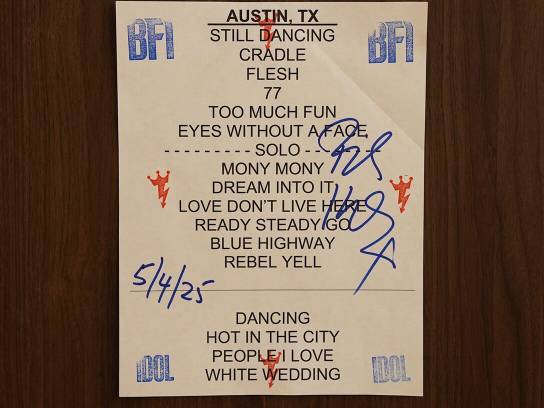 AUSTIN, TX
BFI
BFI
STILL DANCING
CRADLE
FLESH
77
TOO MUCH FUN
EYES WITHOUT A FACE
- - - - - - - - - SOLO - - - - - - - - -
MONY MONY
DREAM INTO IT
LOVE DON'T LIVE HERE
READY STEADY GO
BLUE HIGHWAY
REBEL YELL
5/4/25
DANCING
HOT IN THE CITY
PEOPLE I LOVE
WHITE WEDDING
IDOL
IDOL